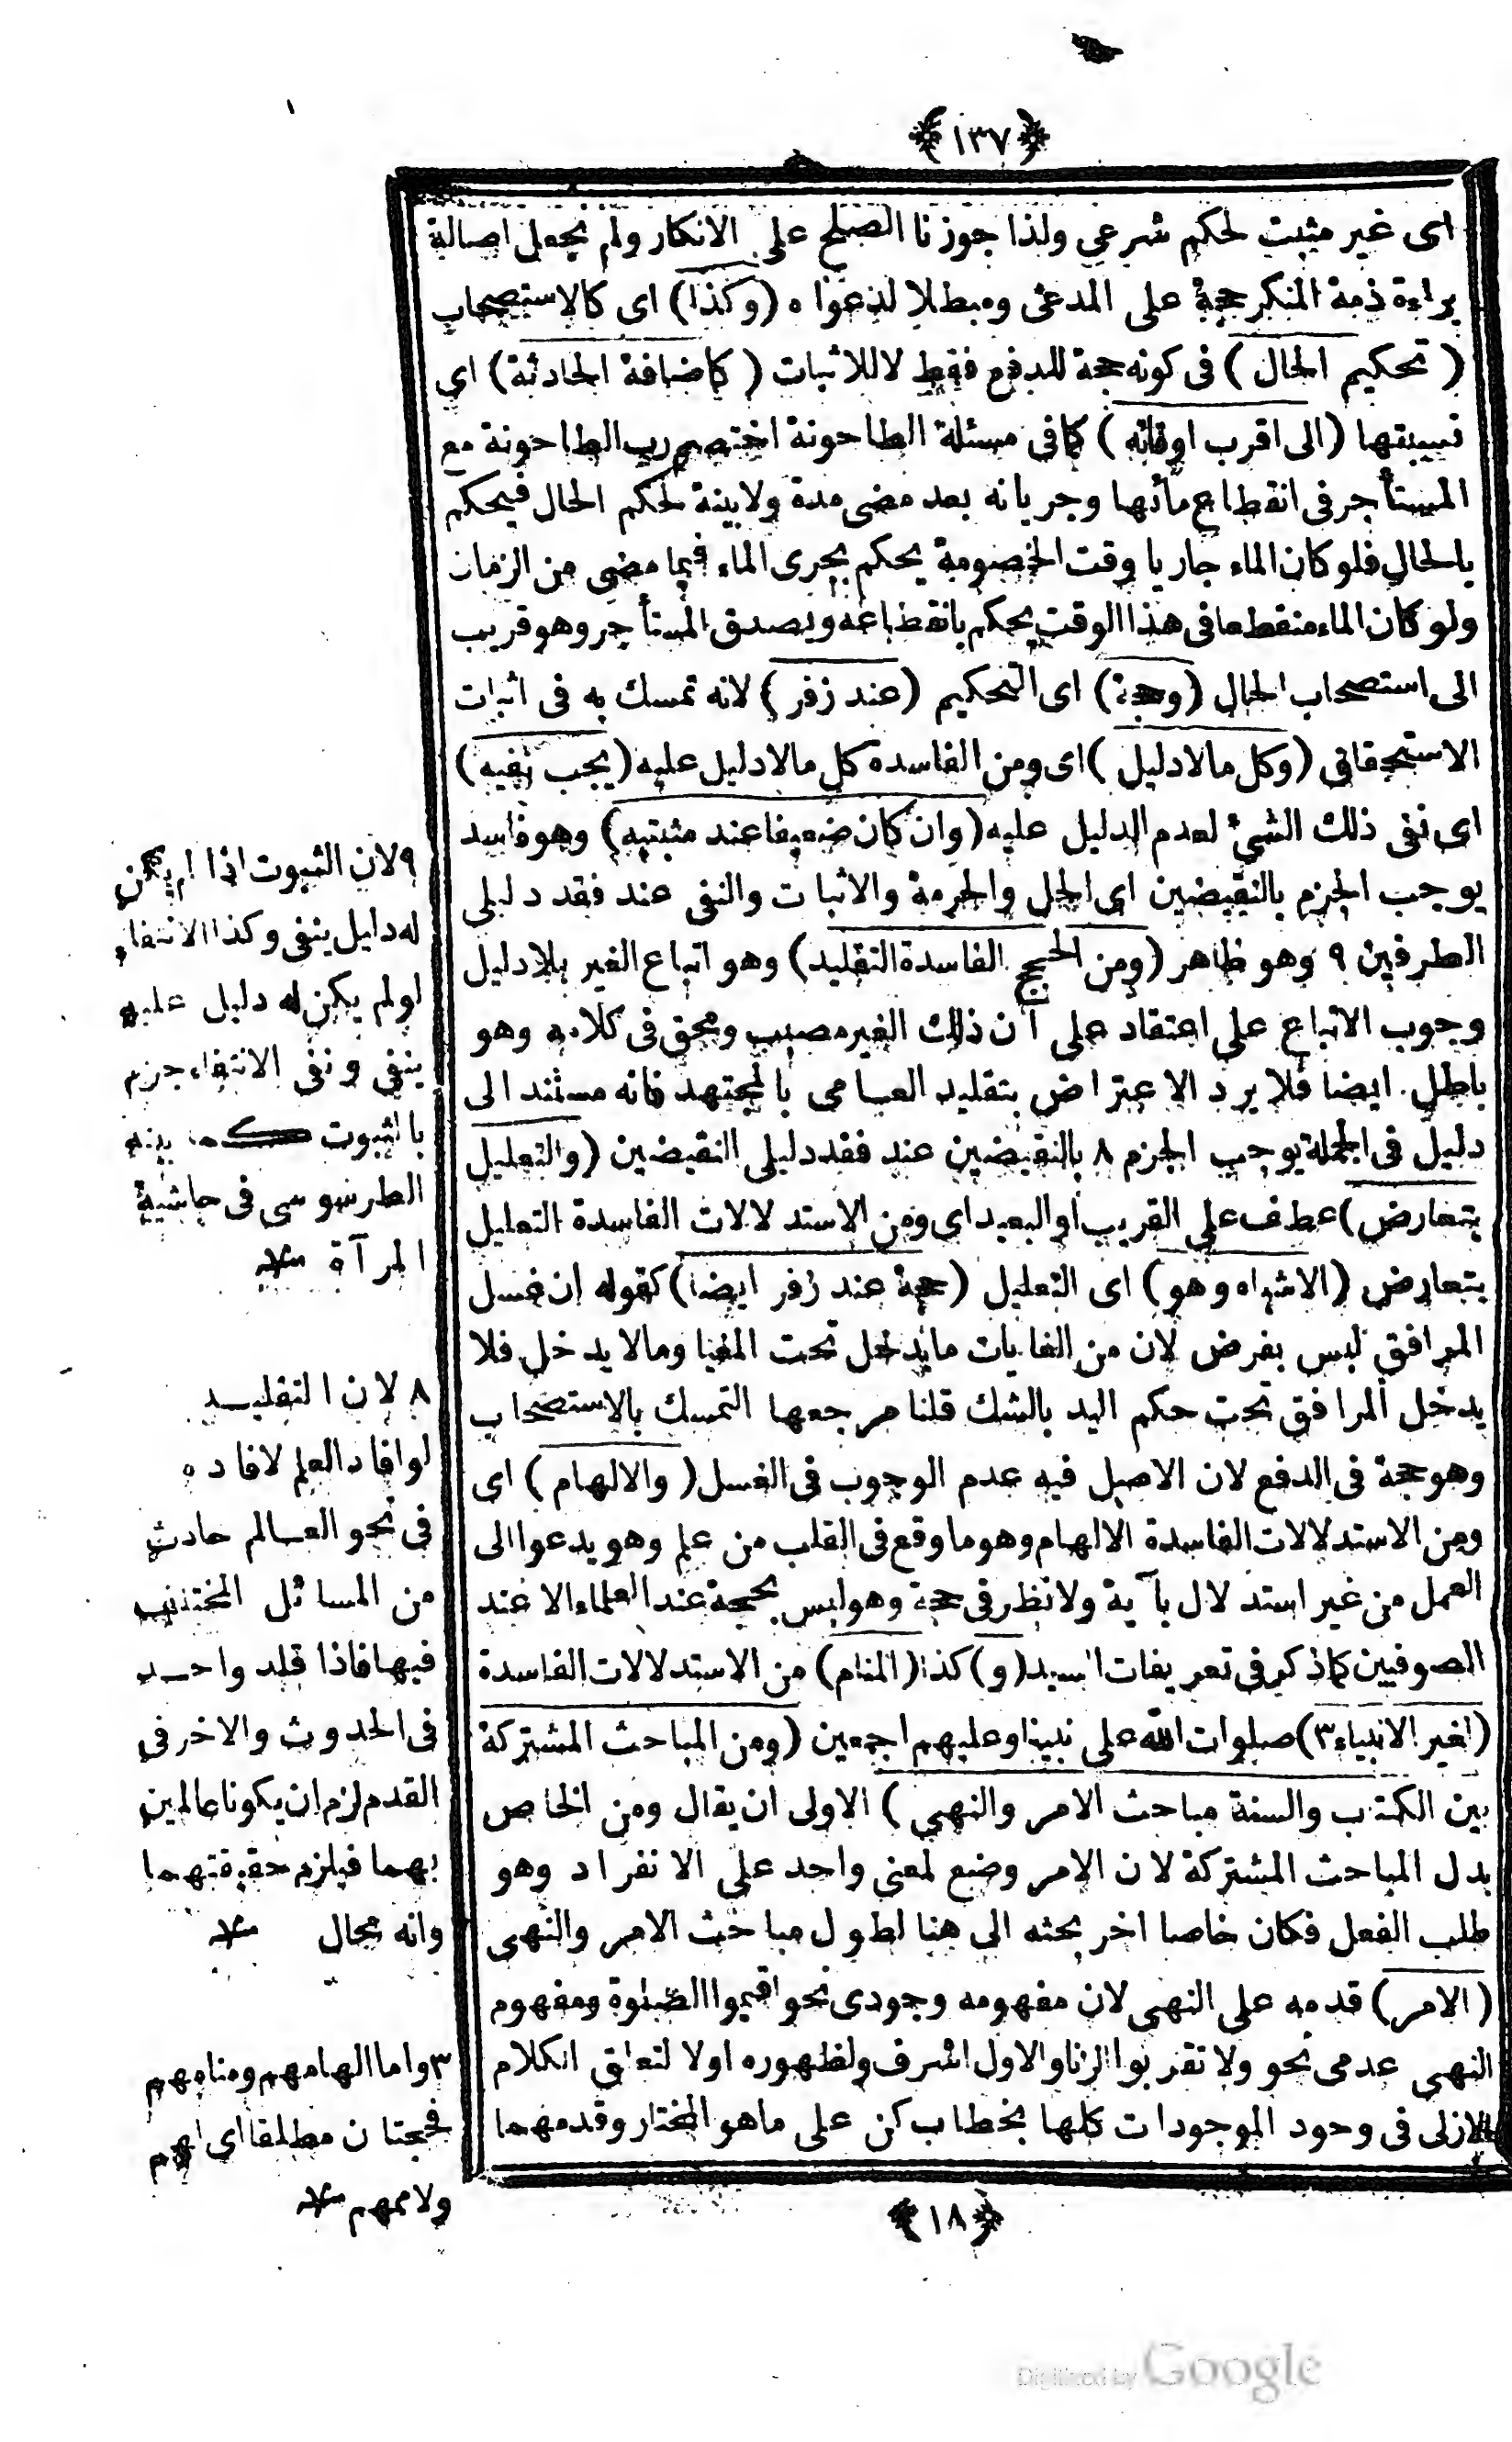 ﴿١٣٧﴾
اى غير مثبت لحكم شرعي ولذا جوزنا الصلح على الانكار ولم يجعل اصالة
براءة ذمة المنكر حجة على المدعى ومبطلا لدعواه (وكذا) اى كالاستصحاب
(تحكيم الحال) فى كونه حجة للدفع فقط لا للاثبات (كاضافة الحادثة) اى
نسبتها (الى اقرب اوقاته) كما فى مسئلة الطاحونة اختصم رب الطاحونة مع
المستأجر فى انقطاع مائها وجريانه بعد مضى مدة ولا بينة لحكم الحال فيحكم
بالحال فلو كان الماء جاريا وقت الخصومة يحكم بجرى الماء فيما مضى من الزمان
ولو كان الماء منقطعا فى هذا الوقت يحكم بانقطاعه ويصدق المستأجر وهو قريب
الى استصحاب الحال (وحجة) اى التحكيم (عند زفر) لانه تمسك به فى اثبات
الاستحقاق (وكل مالا دليل) اى ومن الفاسدة كل مالا دليل عليه (يجب نفيه)
اى نفى ذلك الشئ لعدم الدليل عليه (وان كان ضعيفا عند مثبتيه) وهو فاسد
يوجب الجزم بالنقيضين اى الحل والحرمة والاثبات والنفى عند فقد دليلى
الطرفين ٩ وهو ظاهر (ومن الحجج الفاسدة التقليد) وهو اتباع الغير بلا دليل
وجوب الاتباع على اعتقاد على ان ذلك الغير مصيب ومحق فى كلامه وهو
باطل ايضا فلا يرد الاعتراض بتقليد العامى بالمجتهد فانه مستند الى
دليل فى الجملة يوجب الجزم ٨ بالنقيضين عند فقد دليلى النقيضين (والتعليل
بتعارض) عطف على القريب او البعيد اى ومن الاستدلالات الفاسدة التعليل
بتعارض (الاشباه وهو) اى التعليل (حجة عند زفر ايضا) كقوله ان غسل
المرافق ليس بفرض لان من الغايات ما يدخل تحت المغيا ومالا يدخل فلا
يدخل المرافق تحت حكم اليد بالشك قلنا مرجعها التمسك بالاستصحاب
وهو حجة فى الدفع لان الاصل فيه عدم الوجوب فى الغسل (والالهام) اى
ومن الاستدلالات الفاسدة الالهام وهو ما وقع فى القلب من علم وهو يدعوا الى
العمل من غير استدلال بآية ولا نظر فى حجة وهو ليس بحجة عند العلماء الا عند
الصوفيين كما ذكر فى تعريفات السيد (و) كذا (المنام) من الاستدلالات الفاسدة
(لغير الانبياء ٣) صلوات الله على نبينا وعليهم اجمعين (ومن المباحث المشتركة
بين الكتاب والسنة مباحث الامر والنهى) الاولى ان يقال ومن الخاص
بدل المباحث المشتركة لان الامر وضع لمعنى واحد على الانفراد وهو
طلب الفعل فكان خاصا اخر بحثه الى هنا لطول مباحث الامر والنهى
(الامر) قدمه على النهى لان مفهومه وجودى نحو اقيموا الصلوة ومفهوم
النهى عدمى نحو ولا تقربوا الزنا والاول اشرف ولظهوره اولا لتعلق الكلام
الازلى فى وجود الموجودات كلها بخطاب كن على ما هو المختار وقدمهما
٩ لان الثبوت اذا لم يكن
له دليل ينفى وكذا الانتفاء
لو لم يكن له دليل عليه
ينفى ونفى الانتفاء جزم
بالثبوت بينه
الطرسوسى فى حاشية
المرآة منه
٨ لان التقليد
لو افاد العلم لافاده
فى نحو العالم حادث
من المسائل المختلف
فيها فاذا قلد واحد
فى الحدوث والاخر فى
القدم لزم ان يكونا عالمين
بهما فيلزم حقيقتهما
وانه محال منه
٣ واما الهامهم ومنامهم
فحجتان مطلقا اى لهم
ولاممهم منه
﴿١٨﴾
Digitized by Google